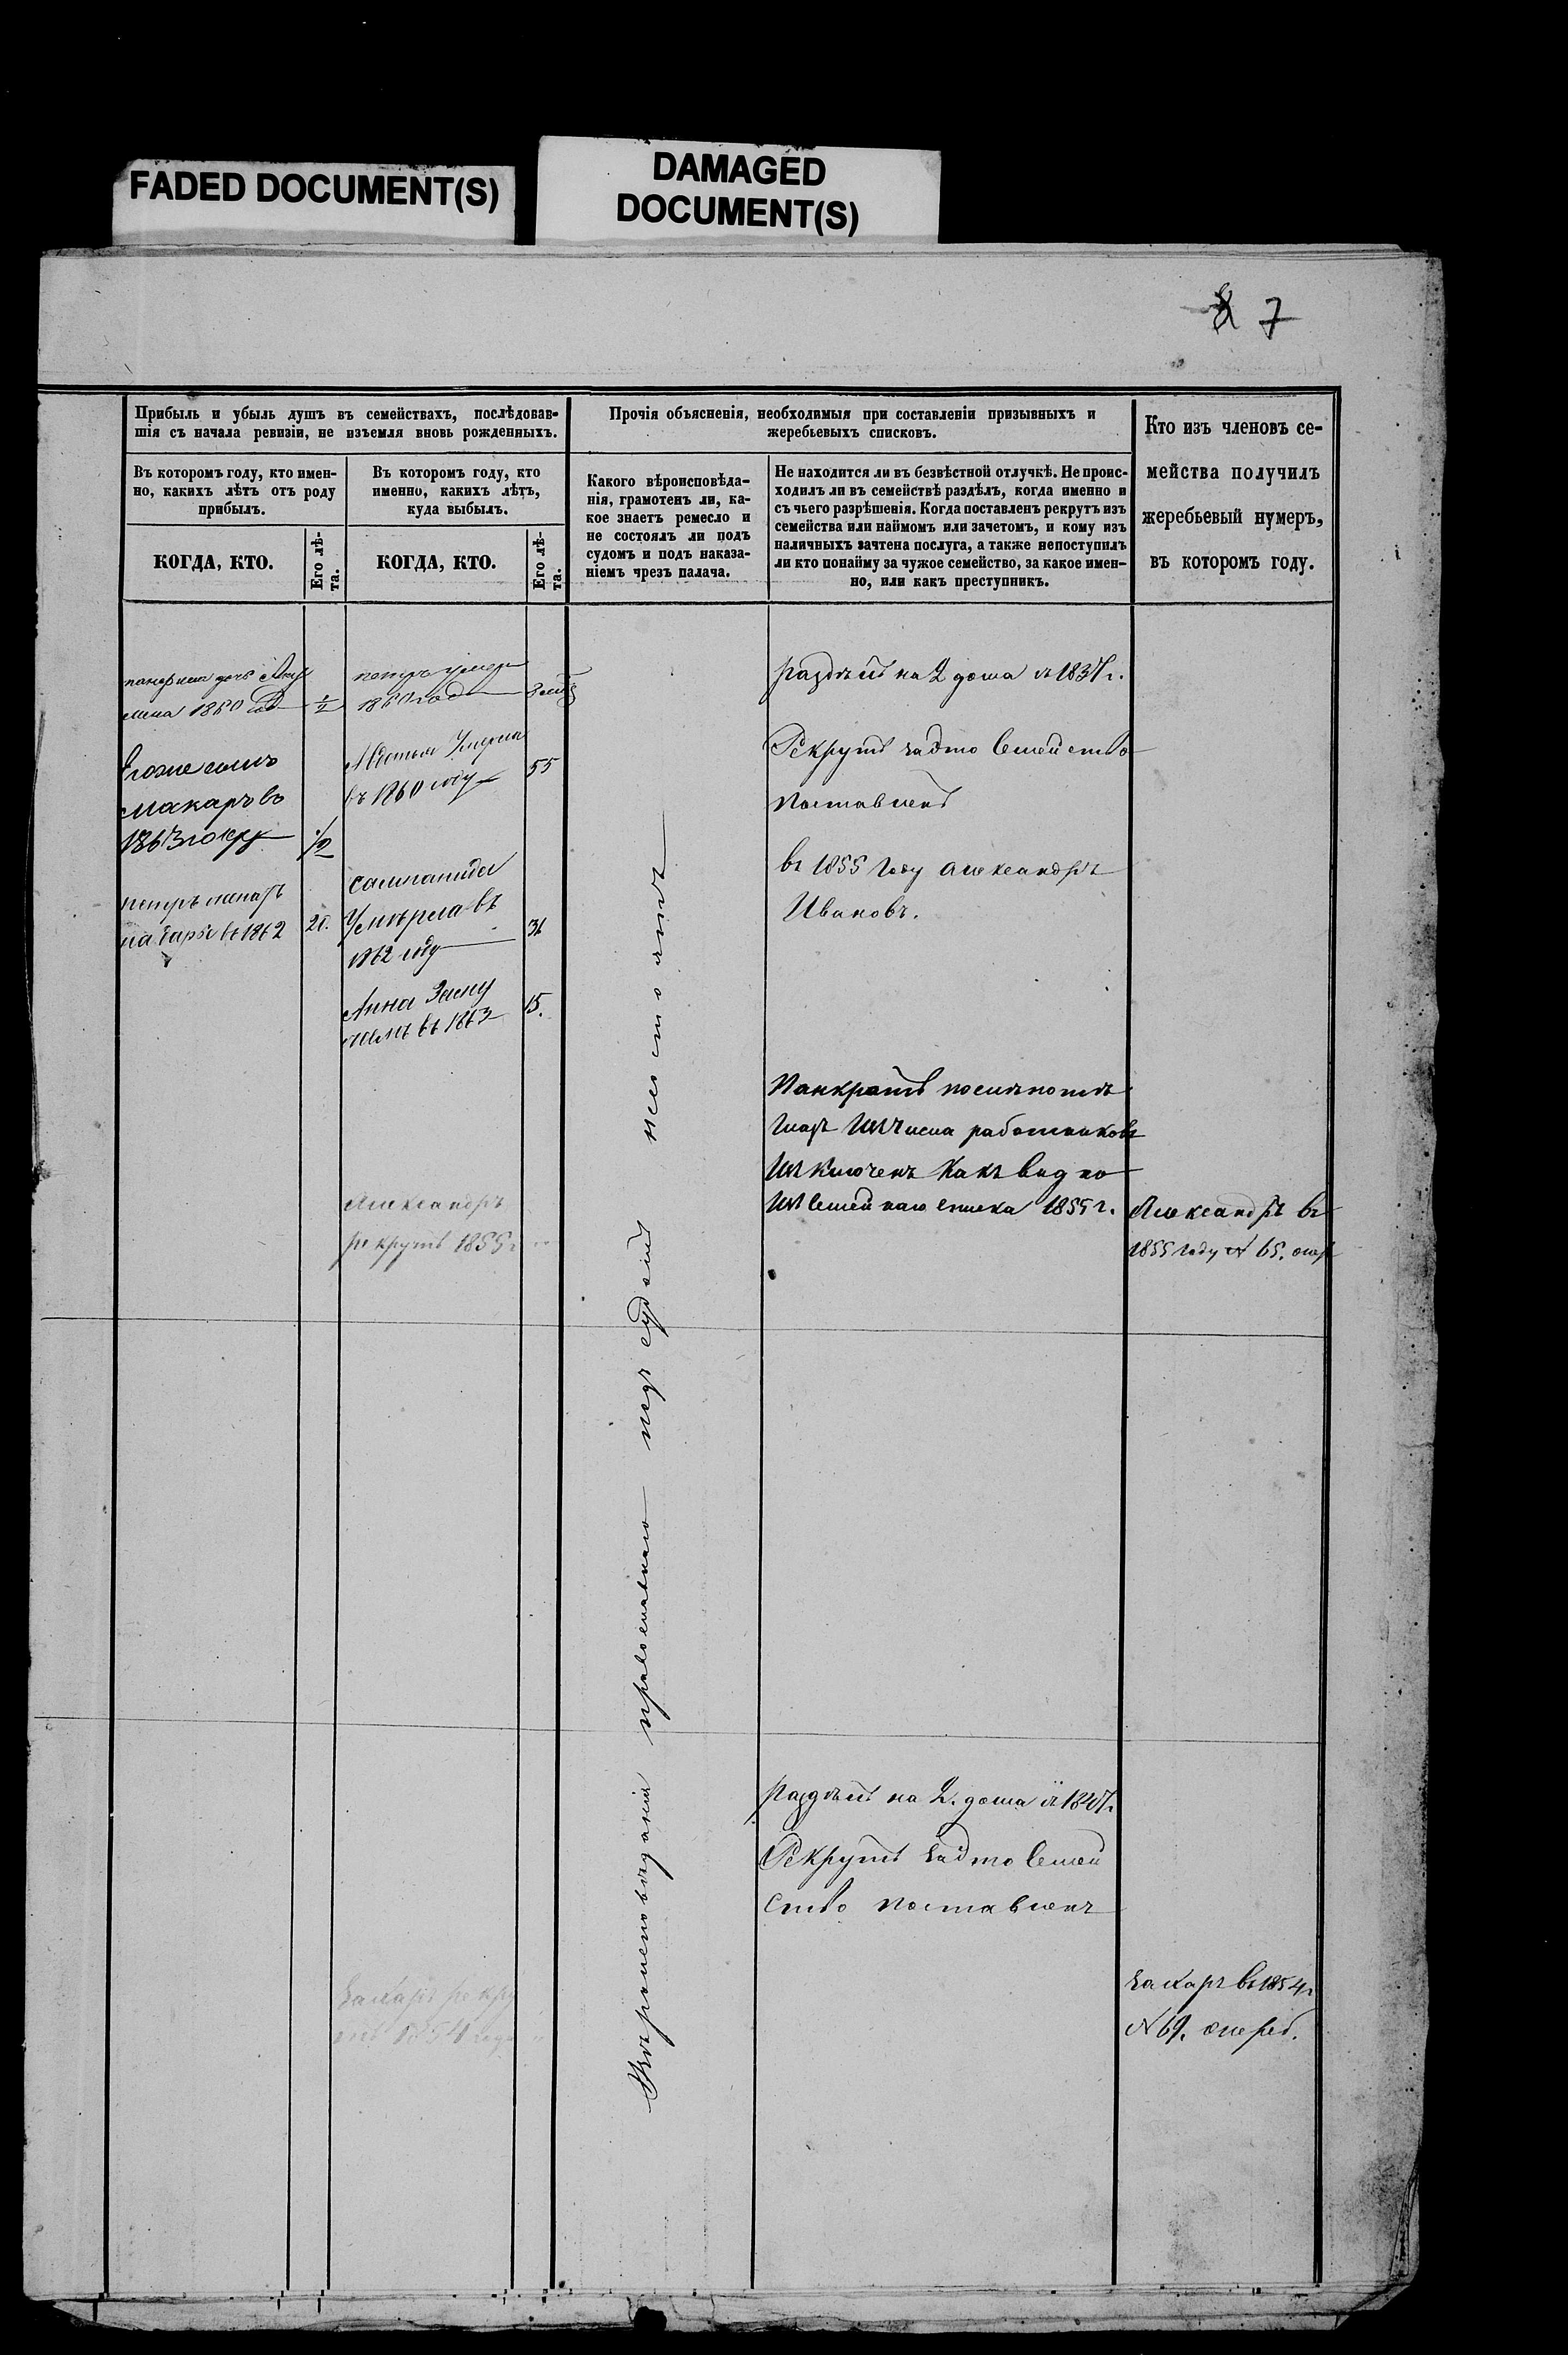 FADED DOCUMENT(S)
DAMAGED
DOCUMENT(S)
7
Прибыль и убыль душъ въ семействахъ, послѣдовав-
шія съ начала ревизіи, не изъемля вновь рожденныхъ.
Въ которомъ году, кто имен-
но, какихъ лѣтъ отъ роду
прибылъ.
КОГДА, КТО.
Его лѣ-
та.
Въ которомъ году, кто
именно, какихъ лѣтъ,
куда выбылъ.
КОГДА, КТО.
Его лѣ-
та.
Прочія объясненія, необходимыя при составленіи призывныхъ и
жеребьевыхъ списковъ.
Какого вѣроисповѣда-
нія, грамотенъ ли, ка-
кое знаетъ ремесло и
не состоялъ ли подъ
судомъ и подъ наказа-
ніемъ чрезъ палача.
Не находится ли въ безвѣстной отлучкѣ. Не проис-
ходилъ ли въ семействѣ раздѣлъ, когда именно и
съ чьего разрѣшенія. Когда поставленъ рекрутъ изъ
семейства или наймомъ или зачетомъ, и кому изъ
наличныхъ зачтена послуга, а также непоступилъ
ли кто понайму за чужое семейство, за какое имен-
но, или какъ преступникъ.
Кто изъ членовъ се-
мейства получилъ
жеребьевый нумеръ,
въ которомъ году.
дочь
1860
1/2
Егоже сынъ
макаръ во
1863 году
1/2
петръ
в 1862
20.
петръ умеръ
1860 года
Авдотья Умерла
въ 1860 году
55
Умерла въ
1862 году
31
Анна Заму
жемъ въ 1863
15.
Александръ
рекрутъ 1855 г
Захаръ рекру
тъ 1854 года
Вѣроисповѣданія православнаго подъ судомъ несостоялъ
раздѣлъ на 2 дома в 1837 г.
Рекрутъ задто Семейство
Поставленъ
въ 1855 Году Александръ
Ивановъ.
Панкратъ
Изъ Числа работниковъ
Изключенъ Какъ видно
Изъ Семейнаго Списка 1855 г.
Раздѣлъ на 2. дома в 1847 г.
Рекрутъ задто Семей
Ство Поставленъ
Александръ въ
1855 Году № 65.
Захаръ въ 1854 г
№ 69.